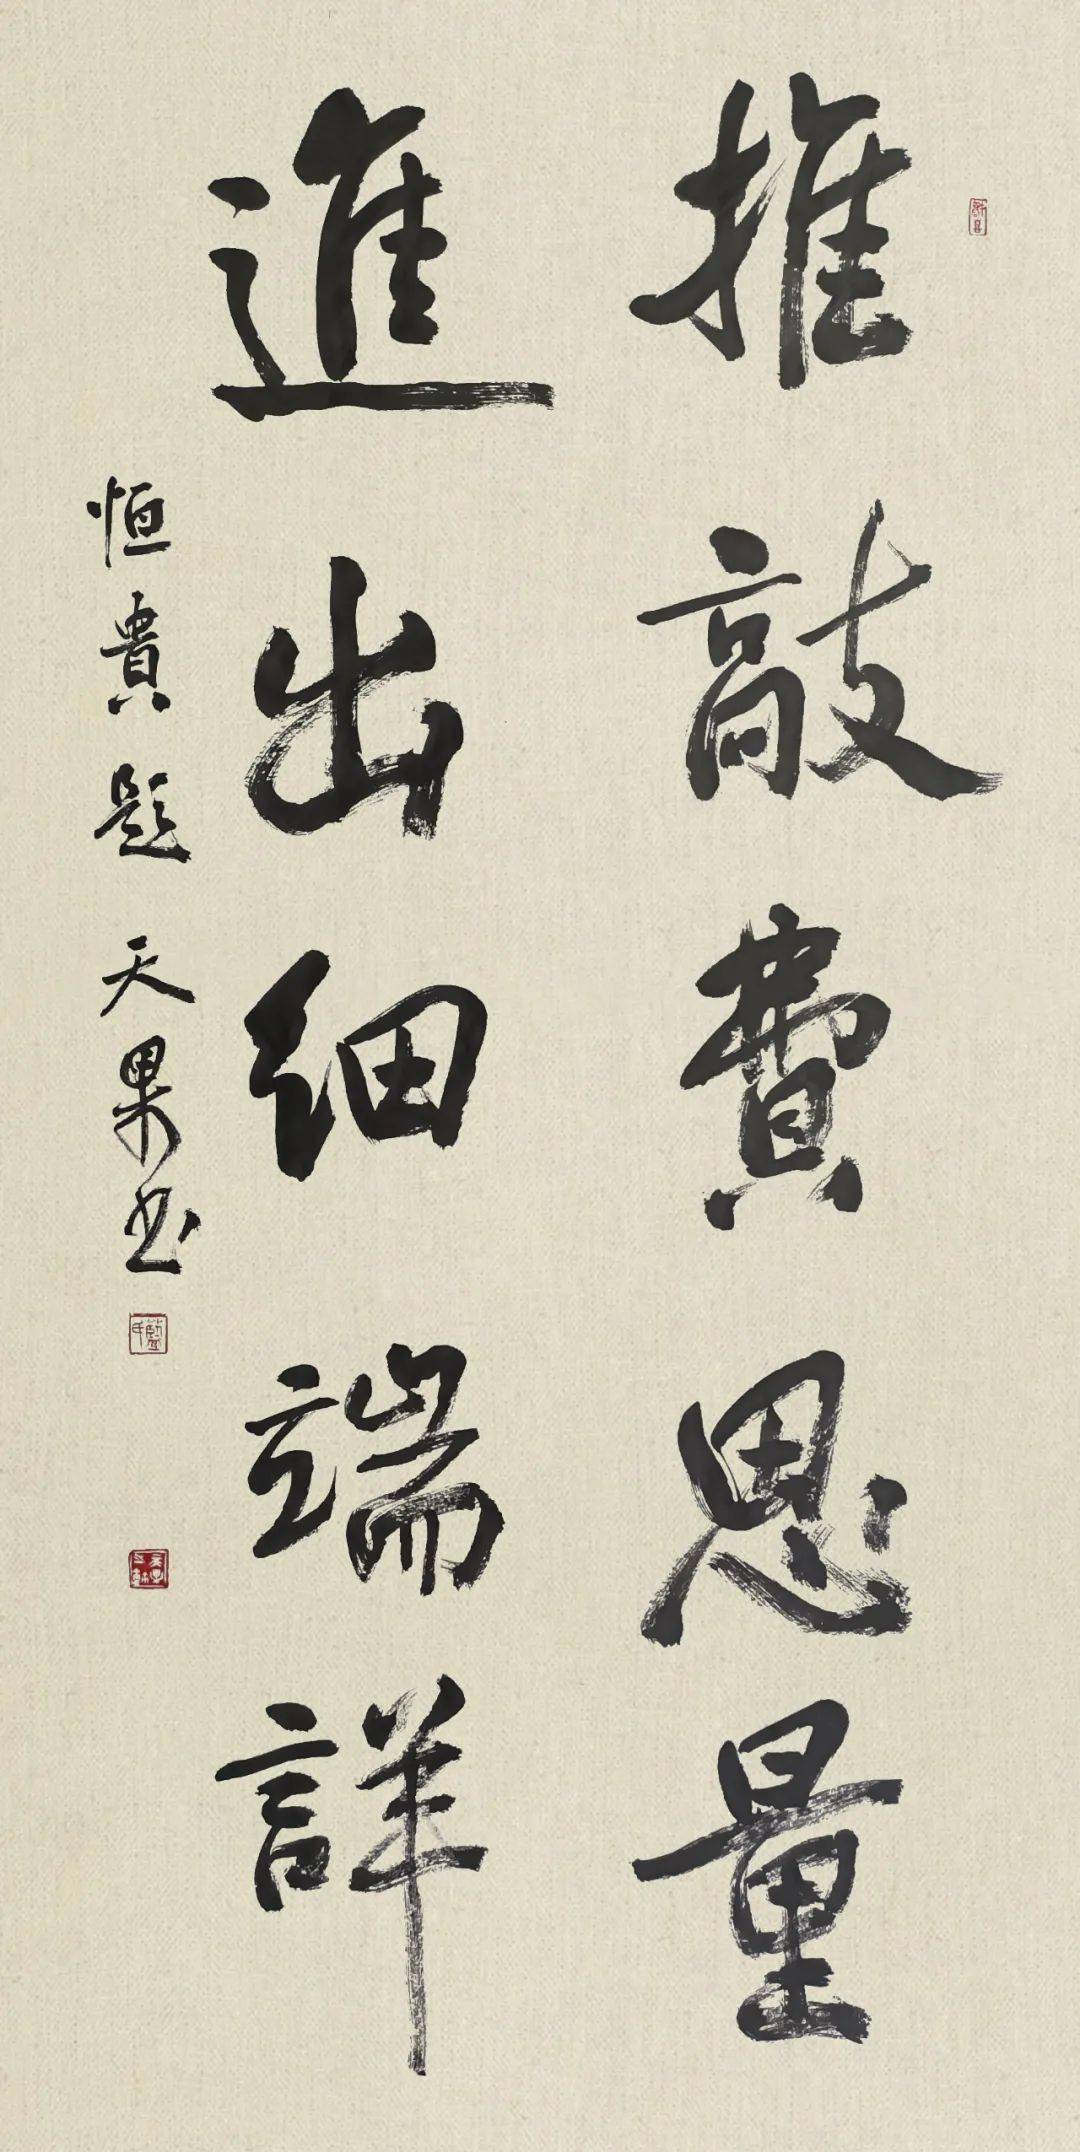 推敲費思量
進出細端詳
恒貴題 天果书